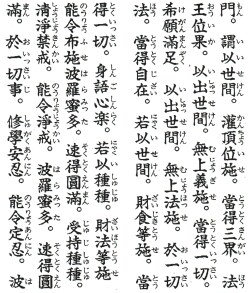 門。謂以世間。灌頂位施。當得三界。法
王位果。以出世間。無上義施。當得一切。
希願滿足。以出世間。無上法施。於一切
法。當得自在。若以世間。財食等施。當
得一切。身語心樂。若以種種。財法等施
能令布施。波羅蜜多。速得圓滿。受持種種。
清淨禁戒。能令淨戒。波羅蜜多。速得圓
滿。於一切事。修學安忍。能令安忍。波